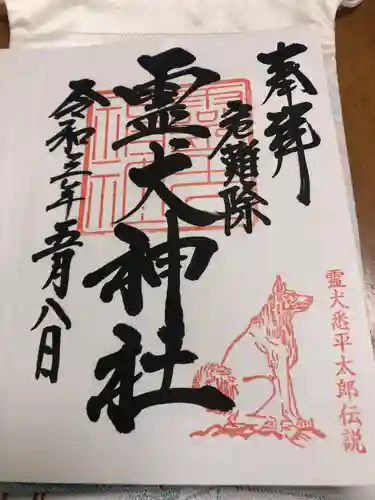 奉拝
危難除
霊犬神社
令和三年五月八日
霊犬悉平太郎伝説